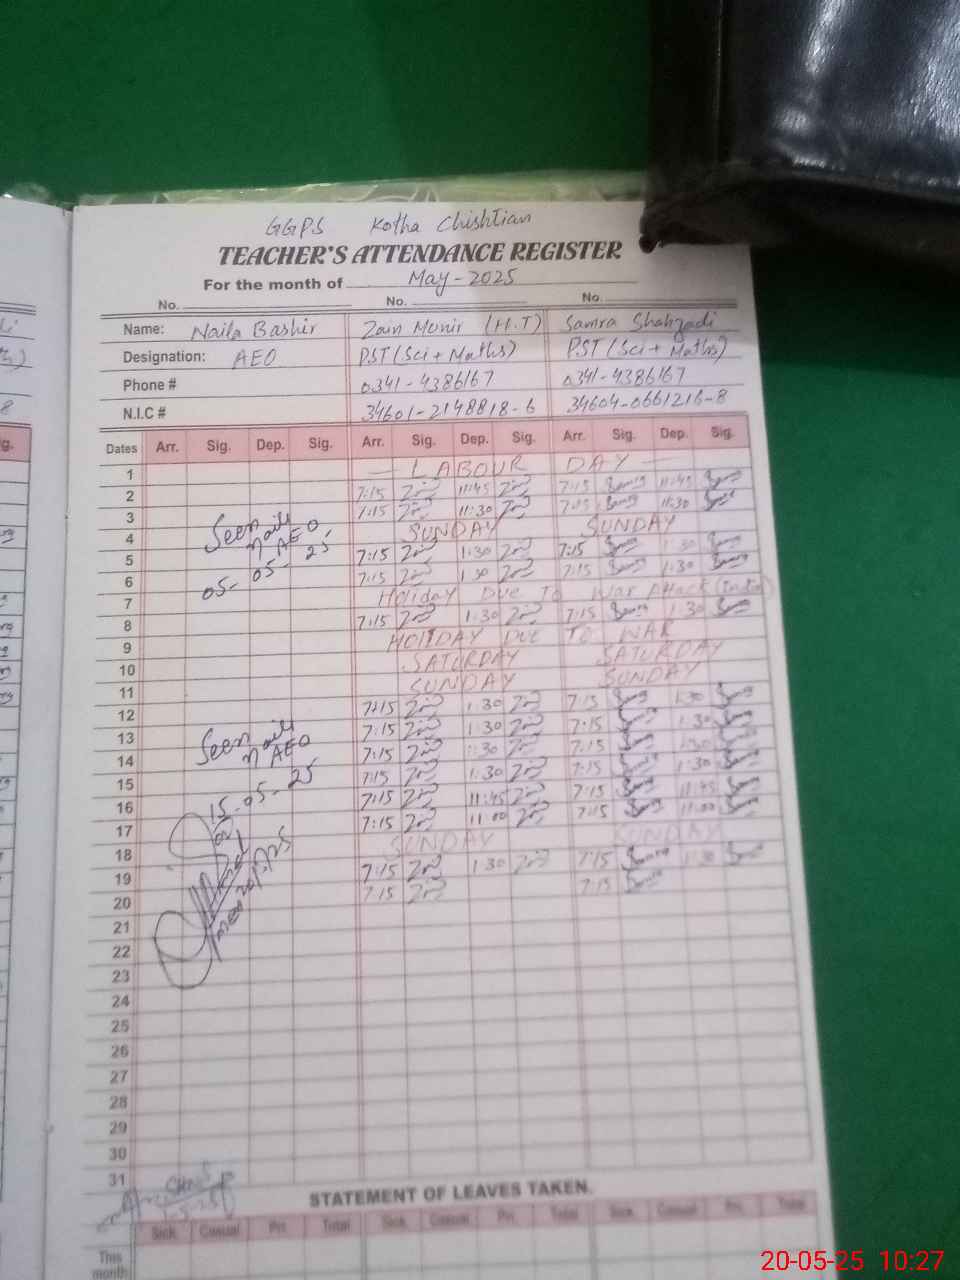 GGPS Kotha Chishtian
TEACHER'S ATTENDANCE REGISTER
For the month of May-2025
No. No. No.
Name: Naila Bashir Zain Munir (H.T) Samra Shahzadi
Designation: AEO PST (Sci + Maths) PST (Sci + Maths)
Phone # 0341-4386167 0341-4386167
N.I.C # 34601-2148818-6 34604-0661216-8
Dates Arr. Sig. Dep. Sig. Arr. Sig. Dep. Sig. Arr. Sig. Dep. Sig.
1 — LABOUR DAY —
2 7:15 11:45 7:15 11:45
3 7:15 11:30 7:15 11:30
4 SUNDAY SUNDAY
Seen
AEO
05-05-25
5 7:15 1:30 7:15 1:30
6 7:15 1:30 7:15 1:30
7 Holiday Due To War Attack (India)
8 7:15 1:30 7:15 1:30
9 HOLIDAY DUE TO WAR
10 SATURDAY SATURDAY
11 SUNDAY SUNDAY
12 7:15 1:30 7:15 1:30
13 7:15 1:30 7:15 1:30
14 7:15 1:30 7:15 1:30
Seen
AEO
15-05-25
15 7:15 1:30 7:15 1:30
16 7:15 11:45 7:15 11:45
17 7:15 11:00 7:15 11:00
18 SUNDAY SUNDAY
19 7:15 1:30 7:15 1:30
20 7:15 7:15
21
22
23
24
25
26
27
28
29
30
31
STATEMENT OF LEAVES TAKEN.
Sick. Casual Pri. Total Sick. Casual Pri. Total Sick. Casual Pri. Total
This
month
20-05-25 10:27